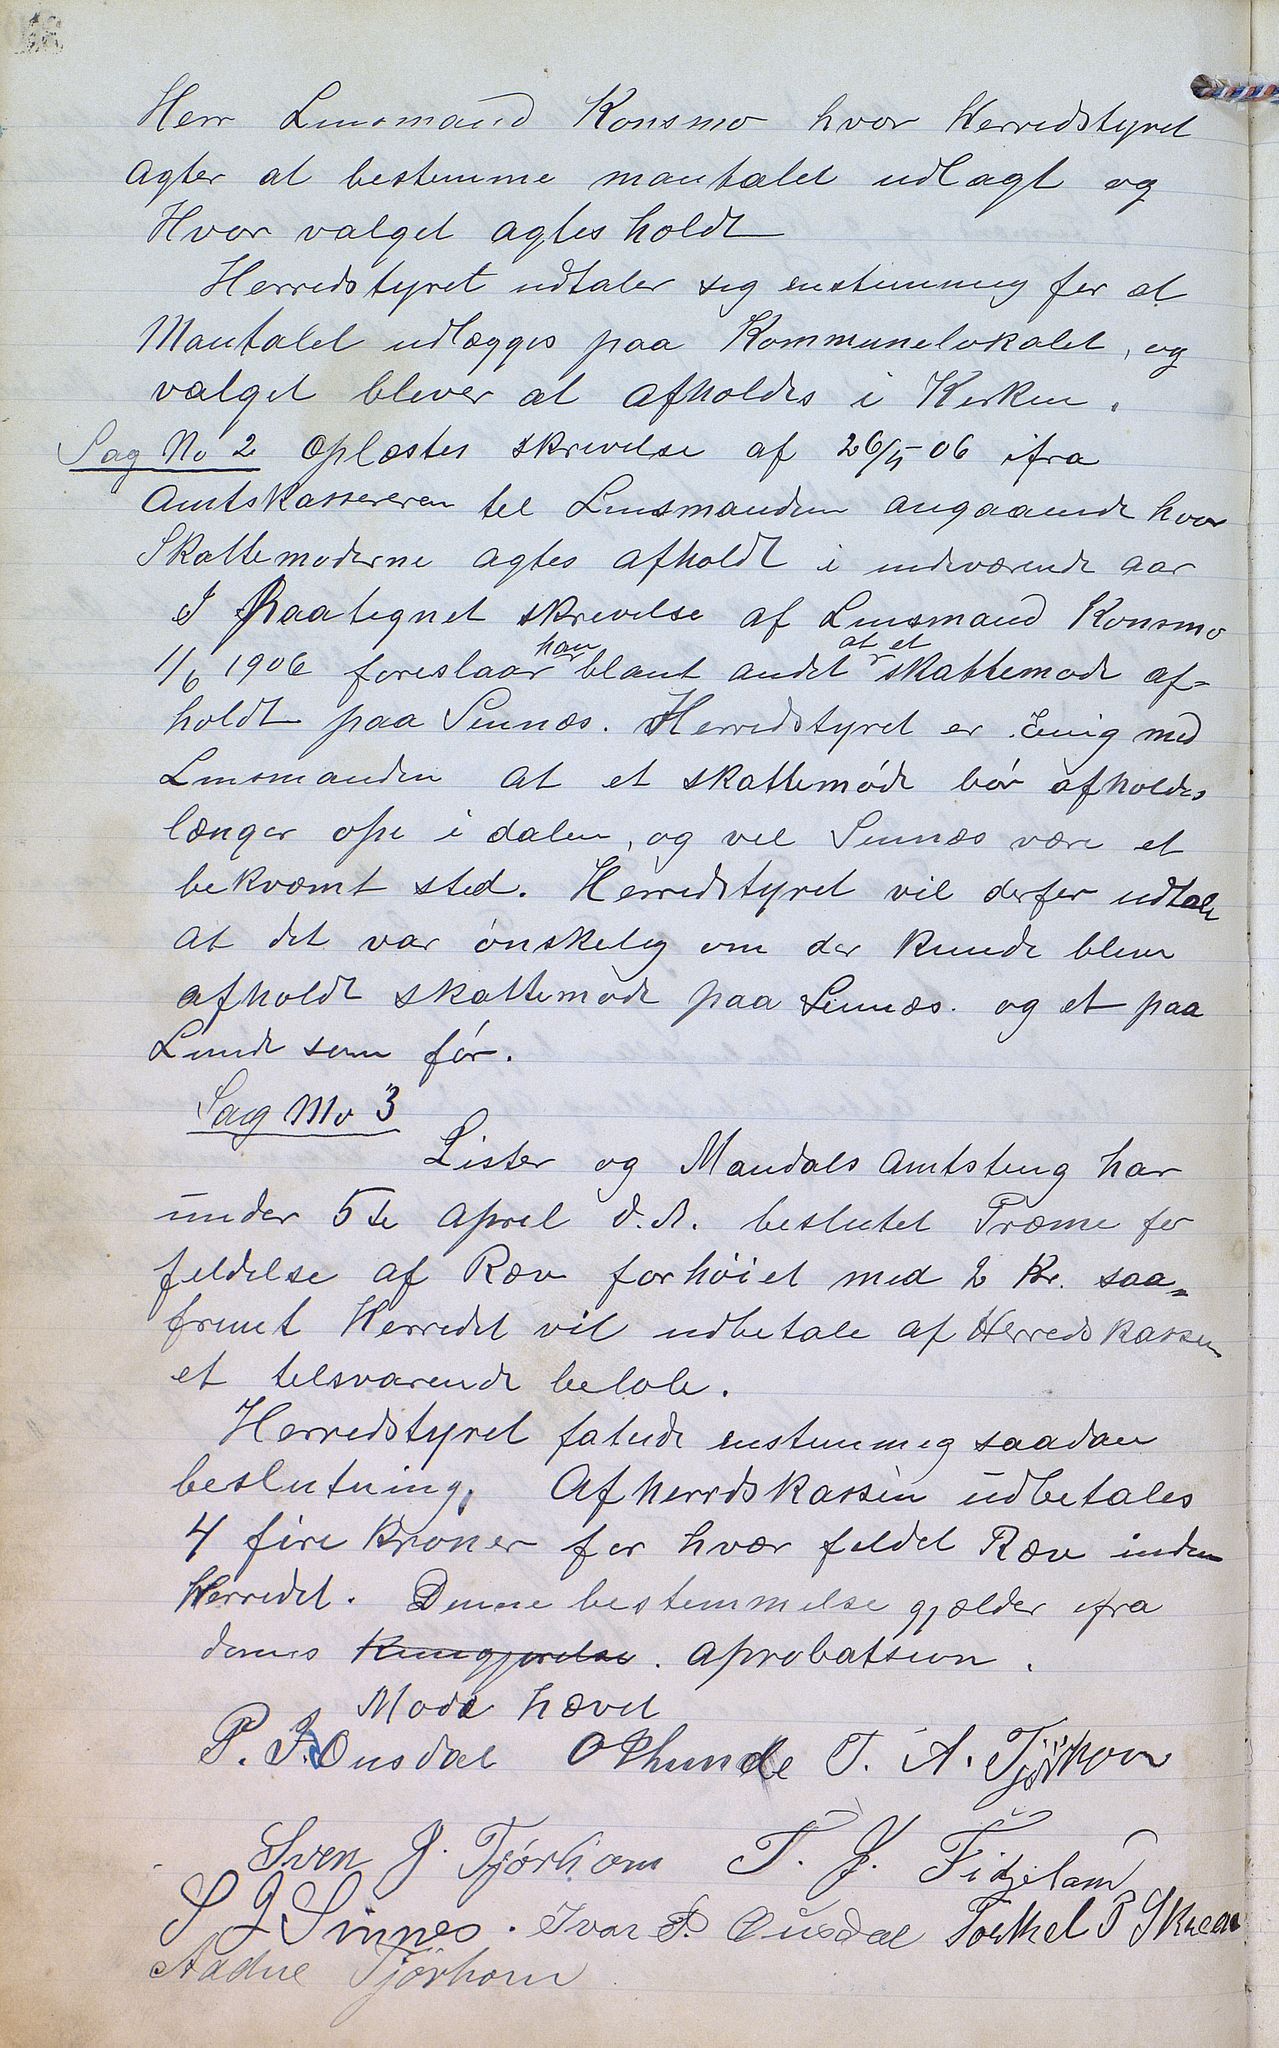 Herr Linsmand Konsmo hvor Herredstyret
agter at bestemme mantalet udlagt og
Hvor valget agtes holdt
Herredstyret udtaler sig enstemmig for at
Mantalet udlægges paa Kommunelokalet, og
valget blever at afholdes i Kerken.
Sag No 2 Oplæstes skrivelse af 26/5 06 ifra
Amtskassereren tel Linsmanden angaaende hvor
Skattemoderne agtes afholdt i indeværende aar
I Paategnet skrevelse af Linsmand Konsmo
1/6 1906 foreslaar han blant andet at et skattemode af-
holdt paa Sinnæs. Herredstyret er Enig med
Linsmanden at et skattemøde bør afholdes
længer ope i dalen, og vel Sinnæs være et
bekvæmt sted. Herredstyret vil derfor udtale
at det var ønskelig om der kunde bleve
afholdt skattemøde paa Sinnæs. og et paa
Lunde som før.
Sag No 3
Lister og Mandals amtsting har
under 5te April d.A. beslutet Præme for
feldelse af Ræv forhøiet med 2 Kr. saa-
fremt Herredet vil udbetale af Herredskassen
et telsvarende beløb.
Herredstyret fatede enstemmig saadan
beslutning. Af herrdskassen udbetales
4 fire Kroner for hvær feldet Ræv inden
Herredet. Denne bestemmelse gjælder ifra
dennes Kungjorelse. aprobatsion.
Mode hævet
P. J. Ousdal O Hunde T. A. Tjørhom
Sven J. Tjørhom T. J. Fidjeland
S J Sinnes. Ivar P. Ousdal Torkel P Skreaa
Aadne Tjørhom